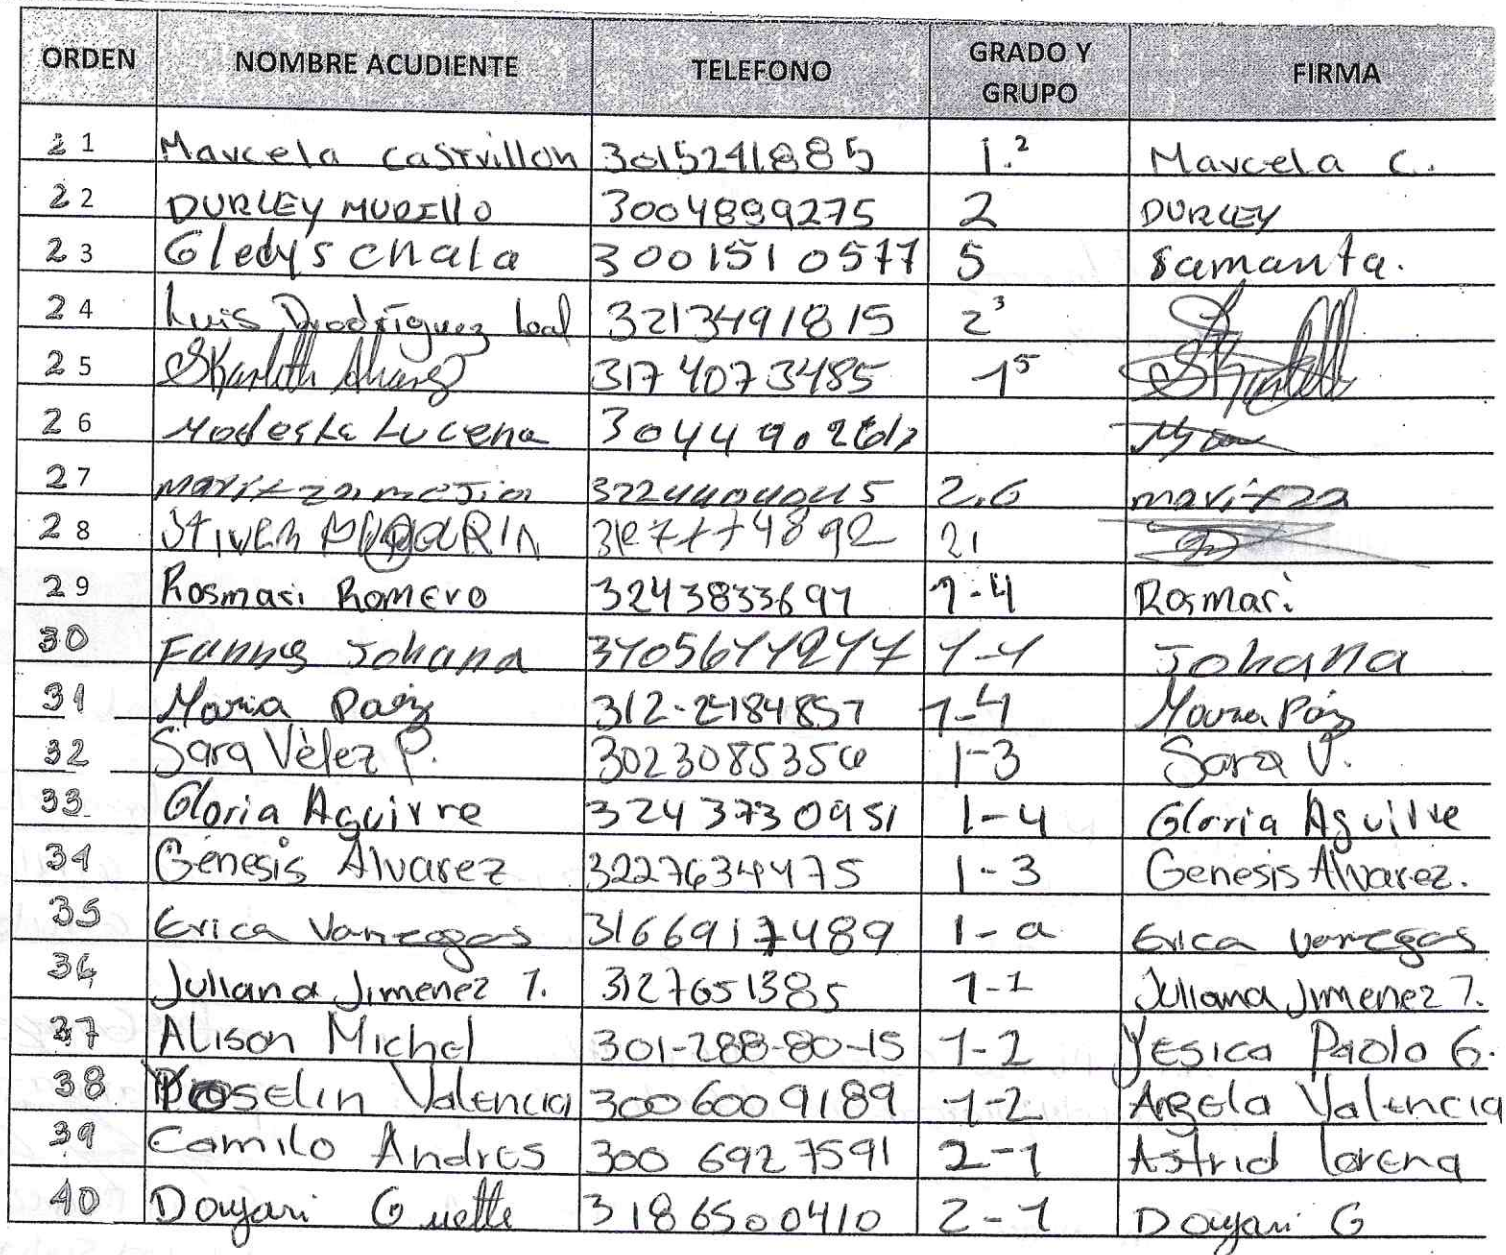 ORDEN NOMBRE ACUDIENTE TELEFONO GRADO Y GRUPO FIRMA
21 Marcela Castrillon 3015241885 1.2 Marcela C.
22 DURLEY MURILLO 3004899275 2 DURLEY
23 Gledys chala 3001510577 5 Samanta.
24 Luis Rodriguez Leal 3213491815 2³
25 3174073485 1⁵
26 Modesta Lucena
27 maritza mejia 2.6 maritza
28 Stiven 21
29 Rosmari Romero 3243833697 1-4 Rosmari
30 Johana 1-4 Johana
31 Maria Paéz 312-2184857 1-4 Maria Páez
32 Sara Vèlez P. 3023085356 1-3 Sara V.
33 Gloria Aguirre 3243730951 1-4 Gloria Aguilve
34 Génesis Álvarez 3227634475 1-3 Genesis Álvarez.
35 Erica Vanegas 3166917489 1-a Erica vanegas
36 Juliana Jimenez T. 3127651385 1-1 Juliana Jimenez T.
37 Alison Michel 301-288-80-15 1-2 Yesica Paola G.
38 Yoselin Valencia 3006009189 1-2 Angela Valencia
39 Camilo Andres 300 6927591 2-1 Astrid lorena
40 Doyari Guette 3186500410 2-1 Doyari G